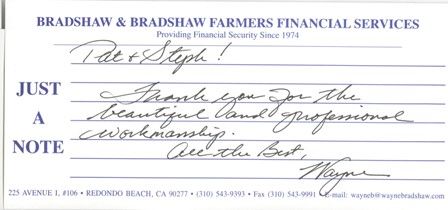 BRADSHAW & BRADSHAW FARMERS FINANCIAL SERVICES
Providing Financial Security Since 1974
Pat & Steph!
JUST
A
NOTE
Thank you for the
beautiful and professional
workmanship.
All the Best,
Wayne
225 AVENUE I, #106 • REDONDO BEACH, CA 90277 • (310) 543-9393 • Fax (310) 543-9991 E-mail: wayneb@waynebradshaw.com